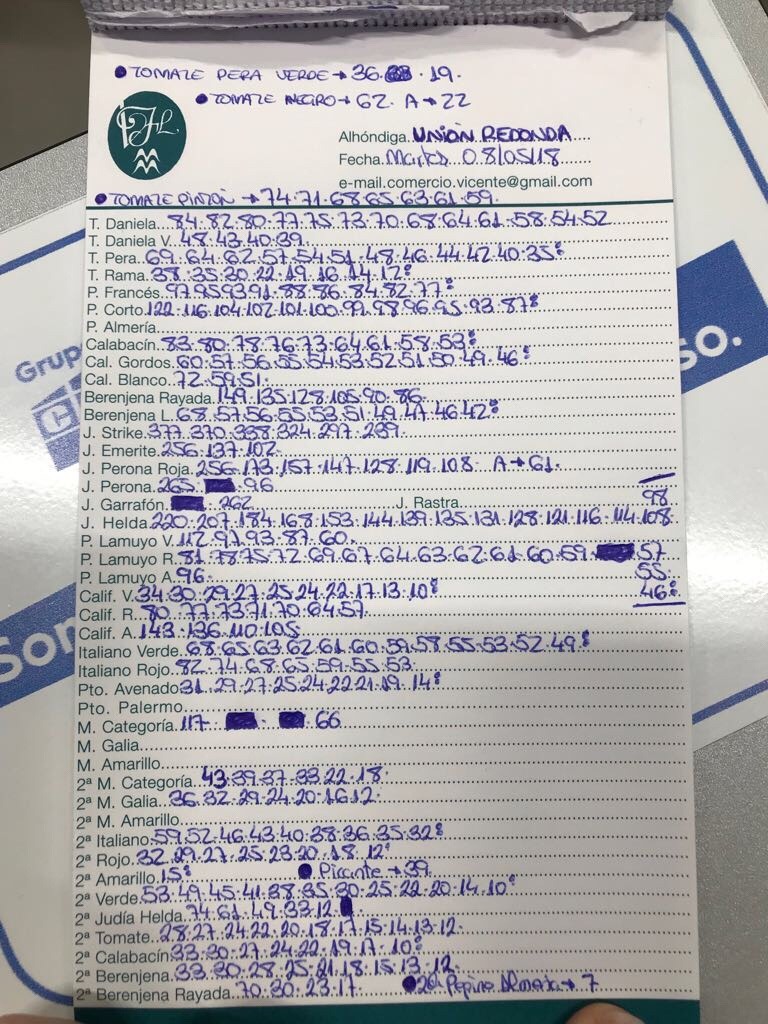 • TOMATE PERA VERDE → 36. 19.
• TOMATE NEGRO → 62. A → 22
Alhóndiga. UNION REDONDA
Fecha. Martes 08/05/18
e-mail.comercio.vicente@gmail.com
• TOMATE PINTON → 74.71.68.65.63.61.59.
T. Daniela 84.82.80.77.75.73.70.68.64.61.58.54.52
T. Daniela V. 48.43.40.39
T. Pera. 69.64.62.57.54.51.48.46.44.42.40.35.
T. Rama. 38.35.30.22.19.16.14.12.
P. Francés. 97.95.93.91.88.86.84.82.77.
P. Corto 122.116.104.102.101.100.99.98.96.95.93.87.
P. Almería
Calabacín. 83.80.78.76.73.64.61.58.53.
Cal. Gordos. 60.57.56.55.54.53.52.51.50.49.46.
Cal. Blanco. 72.59.51.
Berenjena Rayada. 149.135.128.105.90.86.
Berenjena L. 68.57.56.55.53.51.49.47.46.42.
J. Strike. 377.370.338.324.297.239.
J. Emerite. 256.137.102.
J. Perona Roja. 256.173.157.147.128.119.108. A → 61.
J. Perona. 265. 96
J. Garrafón. 262. J. Rastra. 98
J. Helda. 220.207.184.168.153.144.139.135.131.128.121.116.114.108
P. Lamuyo V. 112.97.93.87.60.
P. Lamuyo R. 81.78.75.72.69.67.64.63.62.61.60.59. 57
P. Lamuyo A. 96. 55.
Calif. V. 34.30.29.27.25.24.22.17.13.10. 46.
Calif. R. 80.77.73.71.70.64.57.
Calif. A. 143.136.110.105
Italiano Verde. 68.65.63.62.61.60.59.58.55.53.52.49.
Italiano Rojo. 82.74.68.65.59.55.53
Pto. Avenado 31.29.27.25.24.22.21.19.14.
Pto. Palermo
M. Categoría. 117. 66
M. Galia
M. Amarillo
2ª M. Categoría. 43.39.37.33.22.18.
2ª M. Galia. 36.32.29.24.20.16.12.
2ª M. Amarillo
2ª Italiano. 59.52.46.43.40.38.36.35.32.
2ª Rojo. 32.29.27.25.23.20.18.12.
2ª Amarillo. 15. • Picante → 39
2ª Verde. 53.49.45.41.38.35.30.25.22.20.14.10.
2ª Judía Helda. 74.61.49.33.12.
2ª Tomate. 28.27.24.22.20.18.17.15.14.13.12.
2ª Calabacín. 33.30.27.24.22.19.17.10.
2ª Berenjena. 33.30.28.25.21.18.15.13.12
2ª Berenjena Rayada. 70.30.23.17. • 2ª Pepino Almería → 7
Grup
so.
Son